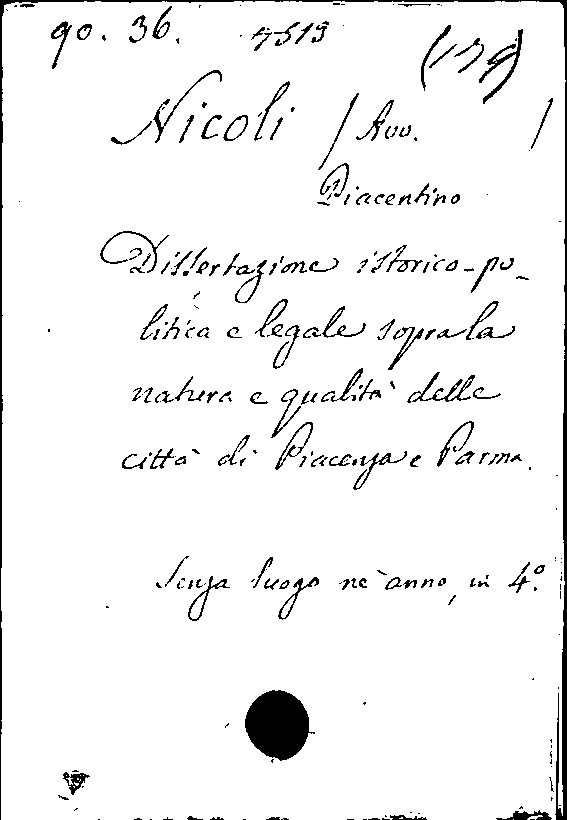 90. 36. 4513 (139)
Nicoli / Avv. /
Piacentino
Dissertazione istorico-po-
litica e legale sopra la
natura e qualità delle
città di Piacenza e Parma.
Senza luogo nè anno, in 4.°